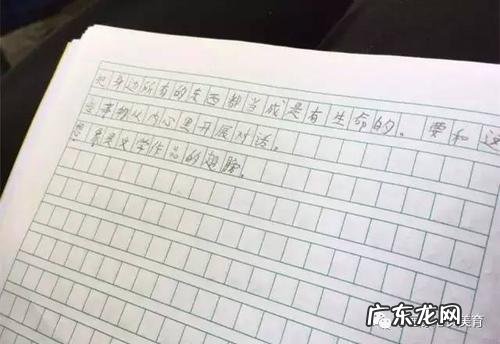 把身边所有的东西都当成是有生命的。要和这
些事物从内心里开展对话。
想象是文学作品的翅膀。
广东龙网
美育